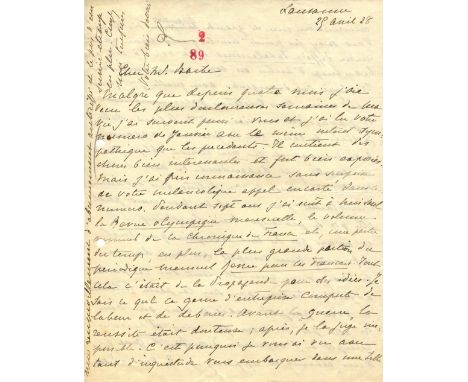 Lausanne
25 avril 28
2
89
Cher M.
Malgré que depuis quatre mois j'aie
vécu les plus douloureuses semaines de ma
vie j'ai souvent pensé à vous et j'ai lu votre
numéro de Janvier avec le même intérêt sym-
pathique que les précédents. Il contient des
choses bien intéressantes et fort bien exposées
mais j'ai pris connaissance sans surprise
de votre mélancolique appel encarté dans le
numéro. Pendant sept ans j'ai écrit à moi seul
la Revue olympique mensuelle, le volume
annuel de la Chronique de France et, une partie
du temps, en plus, la plus grande partie du
périodique mensuel fermé pour les Français. Tout
cela c'était de la Propagande pour des idées. Je
sais ce que ce genre d'entreprise comporte de
labeur et de déboires. Avant la guerre, la
réussite était douteuse; après, je la juge im-
possible. C'est pourquoi je vous ai vu avec
tant d'inquiétude vous embarquer dans une telle